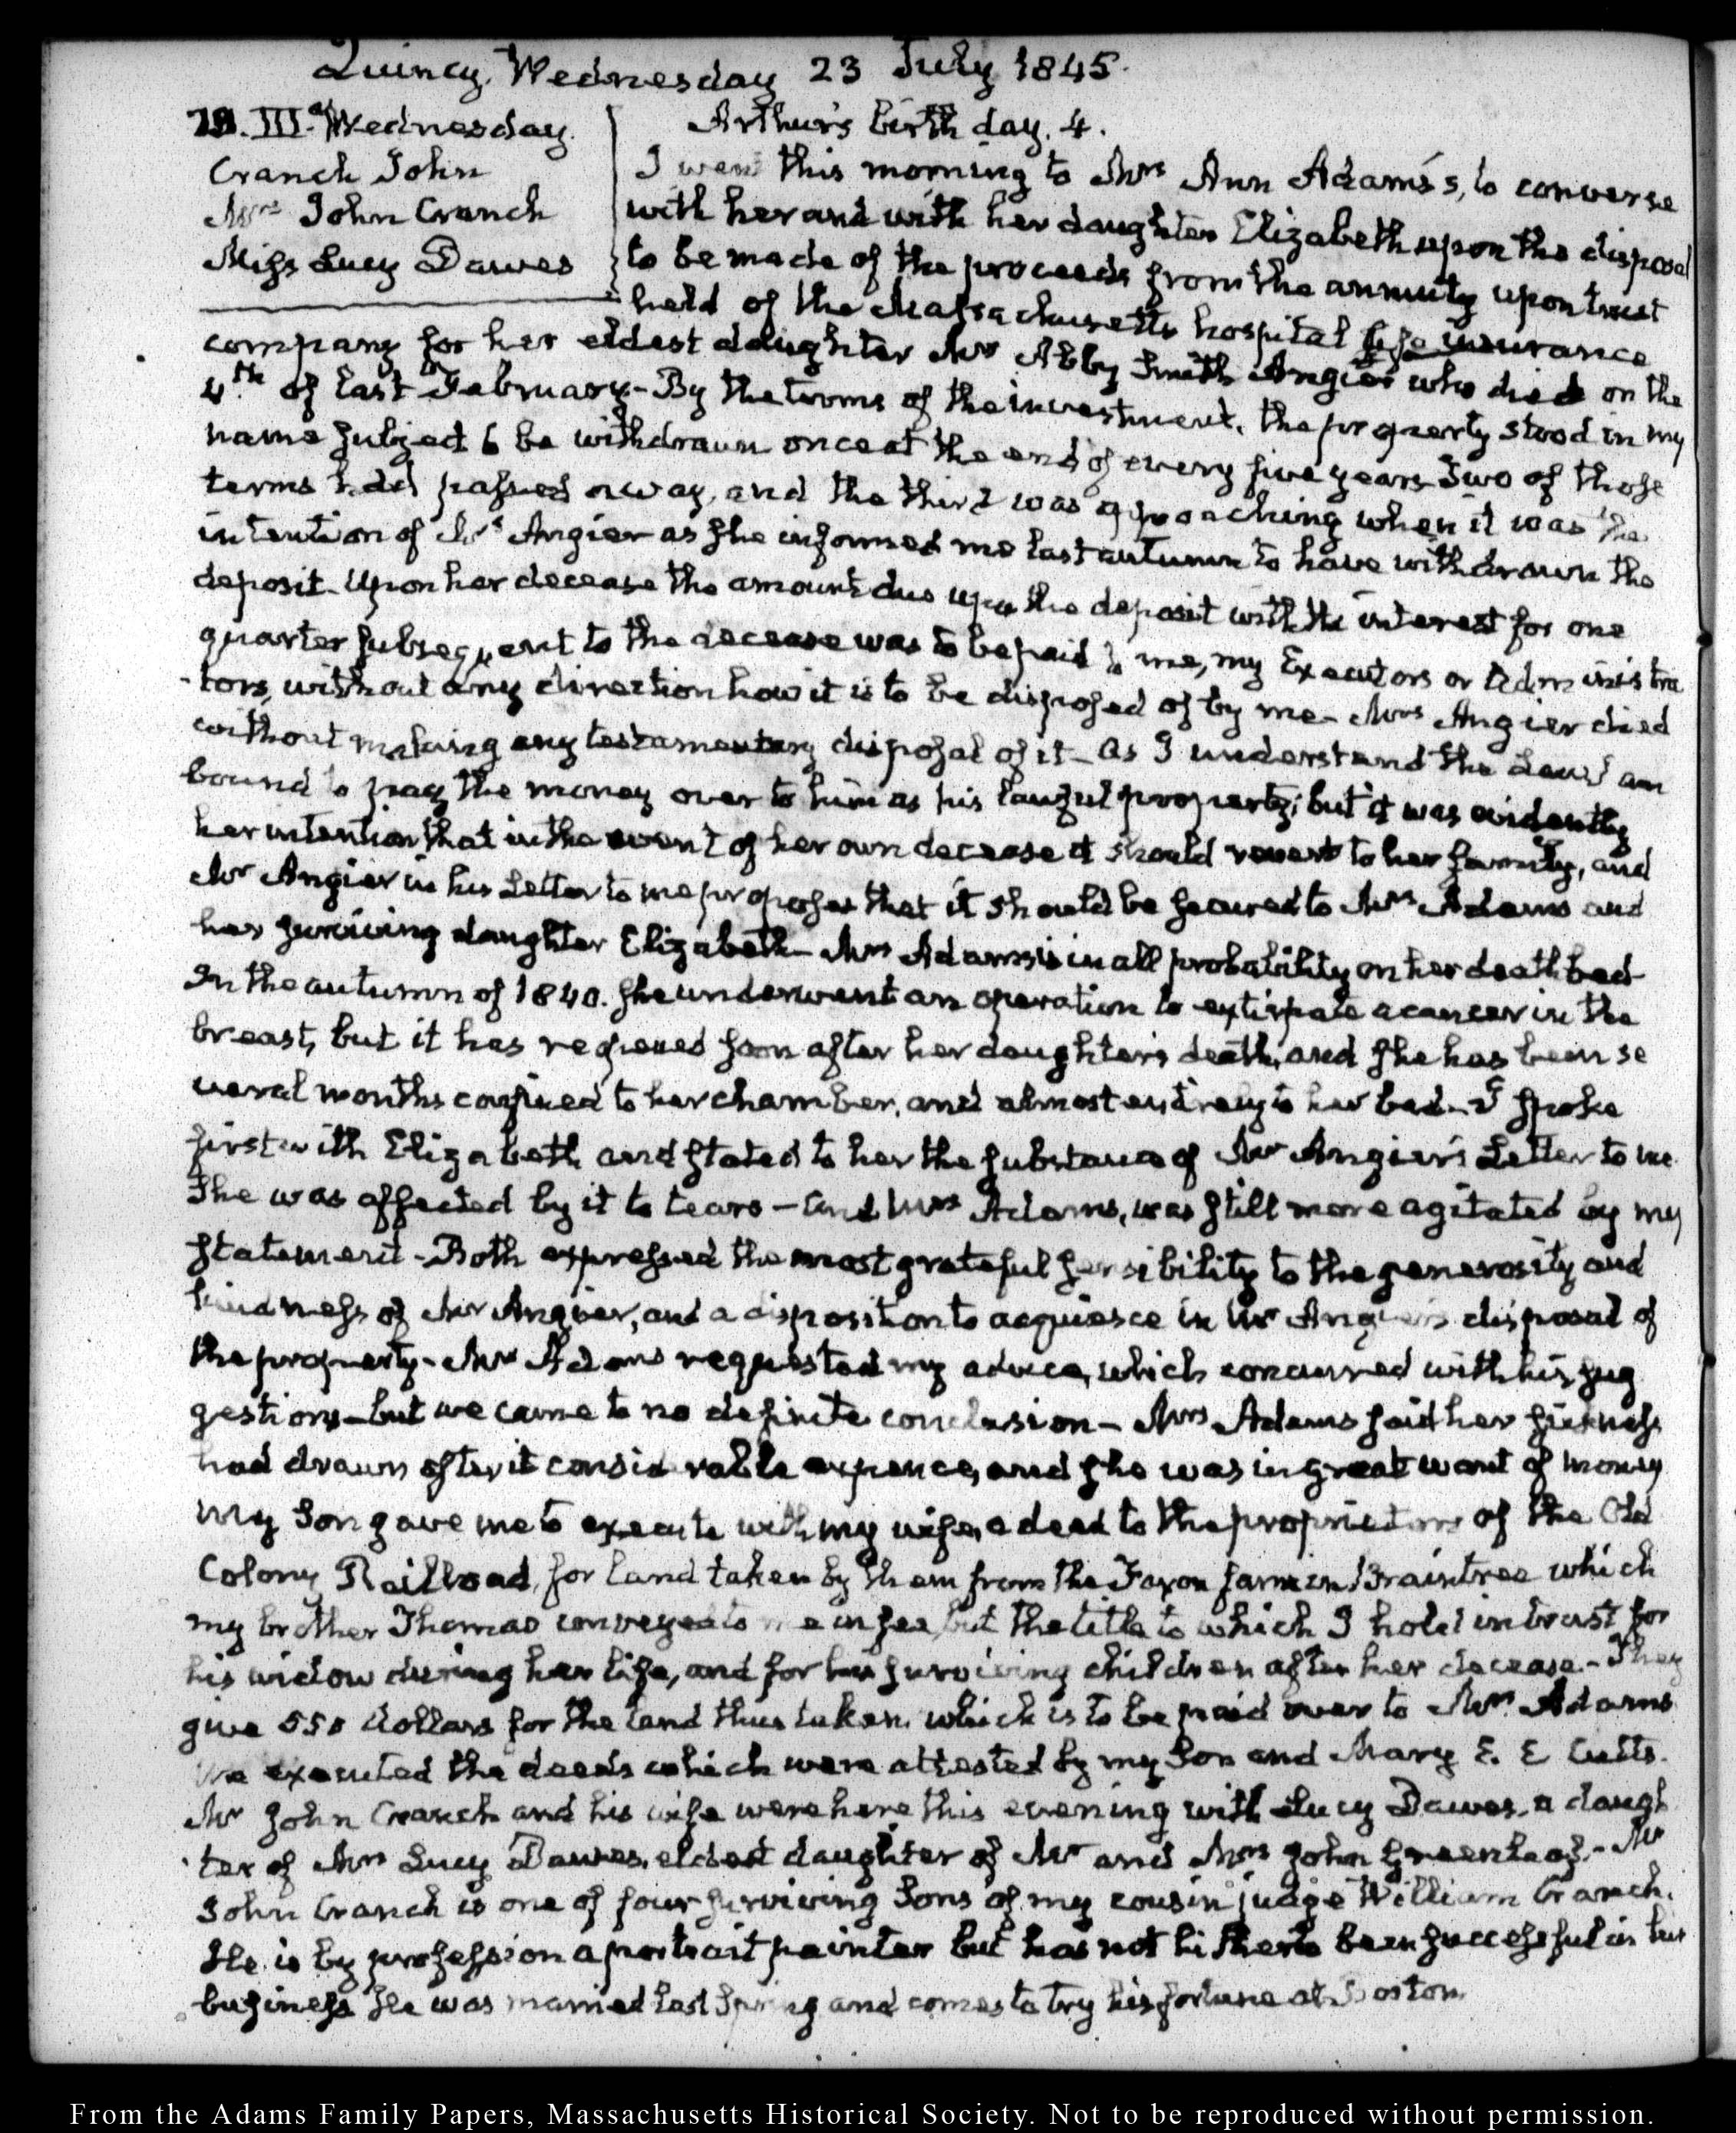 Quincy, Wednesday 23 July 1845.
III. Wednesday.
Cranch John
Mrs John Cranch
Miss Lucy Dawes
Arthur's birth day. 4.
I went this morning to Mrs Ann Adams's, to converse
with her and with her daughter Elizabeth upon the disposal
to be made of the proceeds from the annuity upon trust
held of the Massachusetts hospital life insurance
company for her eldest daughter Mrs Abby Smith Angier who died on the
4th of last February - By the terms of the investment, the property stood in my
name subject to be withdrawn once at the end of every five years Two of those
terms had passed away, and the third was approaching when it was the
intention of Mrs Angier as she informed me last autumn to have withdrawn the
deposit - Upon her decease the amount due upon the deposit with the interest for one
quarter subsequent to the decease was to be paid to me, my Executors or Administra
-tors, without any direction how it is to be disposed of by me - Mrs Angier died
without making any testamentary disposal of it - As I understand the Law I am
bound to pay the money over to him as his lawful property; but it was evidently
her intention that in the event of her own decease it should revert to her family, and
Mr Angier in his Letter to me proposes that it should be secured to Mrs Adams and
her surviving daughter Elizabeth - Mrs Adams is in all probability on her death bed
In the autumn of 1840. she underwent an operation to extirpate a cancer in the
breast, but it has re soon after her daughter's death, and she has been se
veral months confined to her chamber, and almost entirely to her bed - I spoke
first with Elizabeth and stated to her the substance of Mr Angier's Letter to me
She was affected by it to tears - and Mrs Adams, was still more agitated by my
statement - Both expressed the most grateful sensibility to the generosity and
kindness of Mr Angier, and a disposition to acquiesce in Mr Angier's disposal of
the property - Mrs Adams requested my advice, which concurred with his sug
gestions - but we came to no definite conclusion - Mrs Adams said her sickness
had drawn after it considerable expence, and she was in great want of money
My Son gave me to execute with my wife, a deed to the proprietors of the Old
Colony Railroad, for land taken by them from the Faxon farm in Braintree which
my brother Thomas conveyed to me in fee, but the title to which I hold in trust for
his widow during her life, and for his surviving children after her decease - They
give 550 dollars for the land thus taken, which is to be paid over to Mrs Adams
We executed the deeds which were attested by my Son and Mary E. E Cutts.
Mr John Cranch and his wife were here this evening with Lucy Dawes, a daugh
-ter of Mrs Lucy Dawes, eldest daughter of Mr and Mrs John Greenleaf. - Mr
John Cranch is one of four surviving Sons of my cousin judge William Cranch.
He is by profession a portrait painter but has not hitherto been successful in his
business He was married last Spring and comes to try his fortune at Boston.
From the Adams Family Papers, Massachusetts Historical Society. Not to be reproduced without permission.